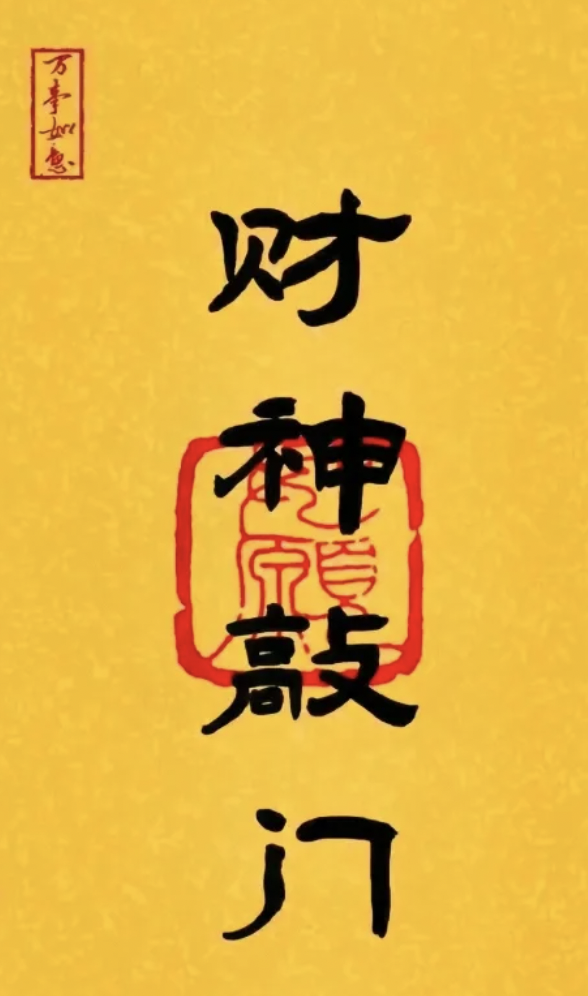 万事如意
财神敲门